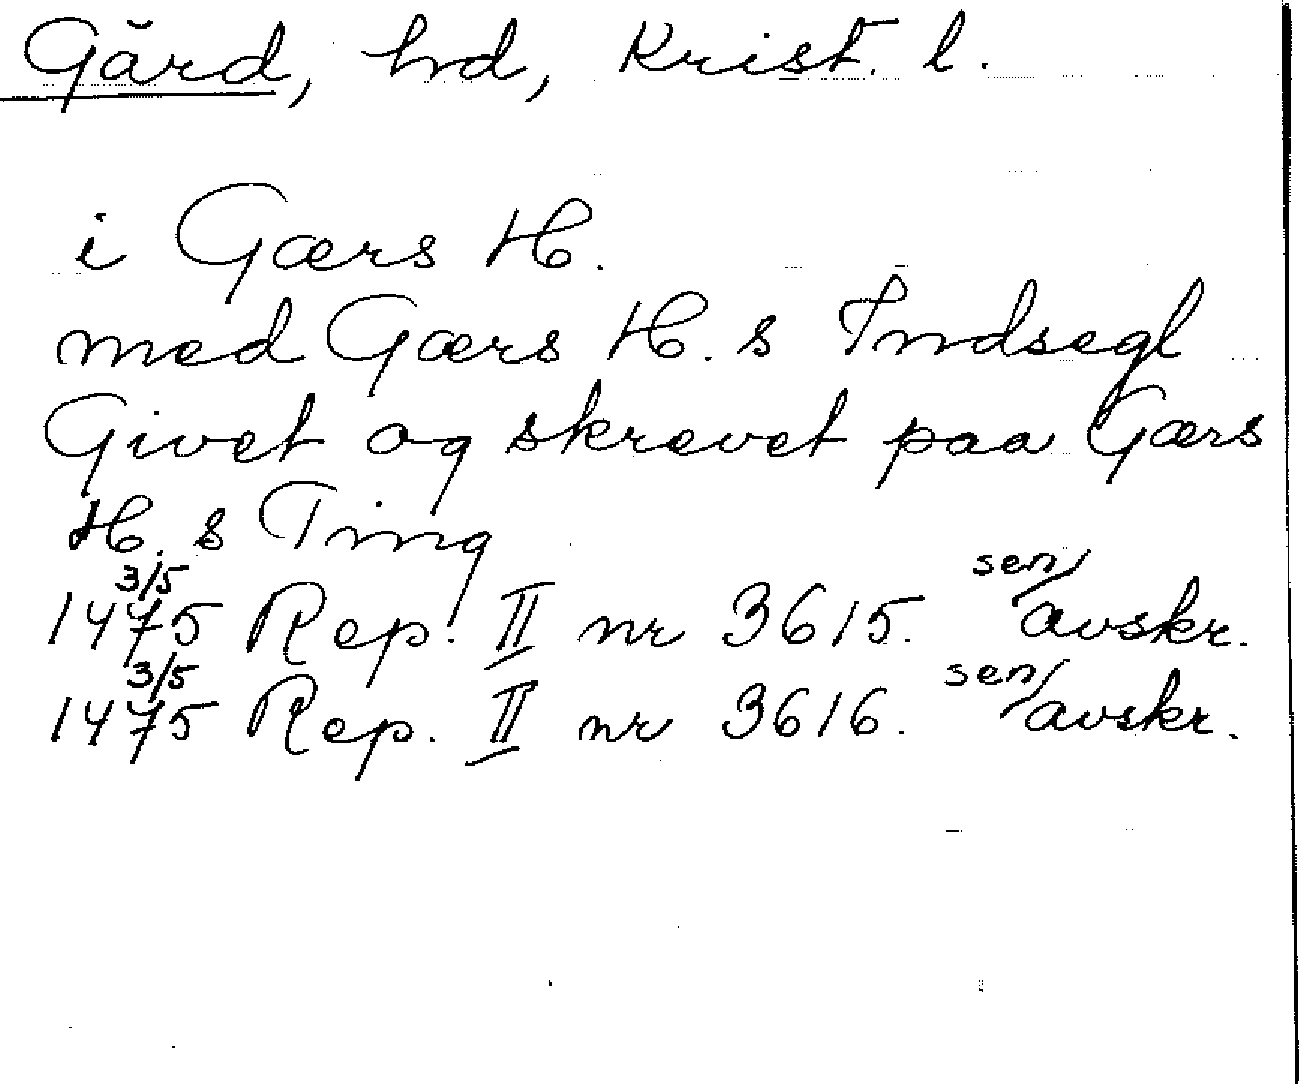 Gärd, hd, Krist. l.
i Gærs H.
med Gærs H.s Indsegl
Givet og skrevet paa Gærs
H.s Ting
1475 3/5 Rep. II nr 3615. sen avskr.
1475 3/5 Rep. II nr 3616. sen avskr.